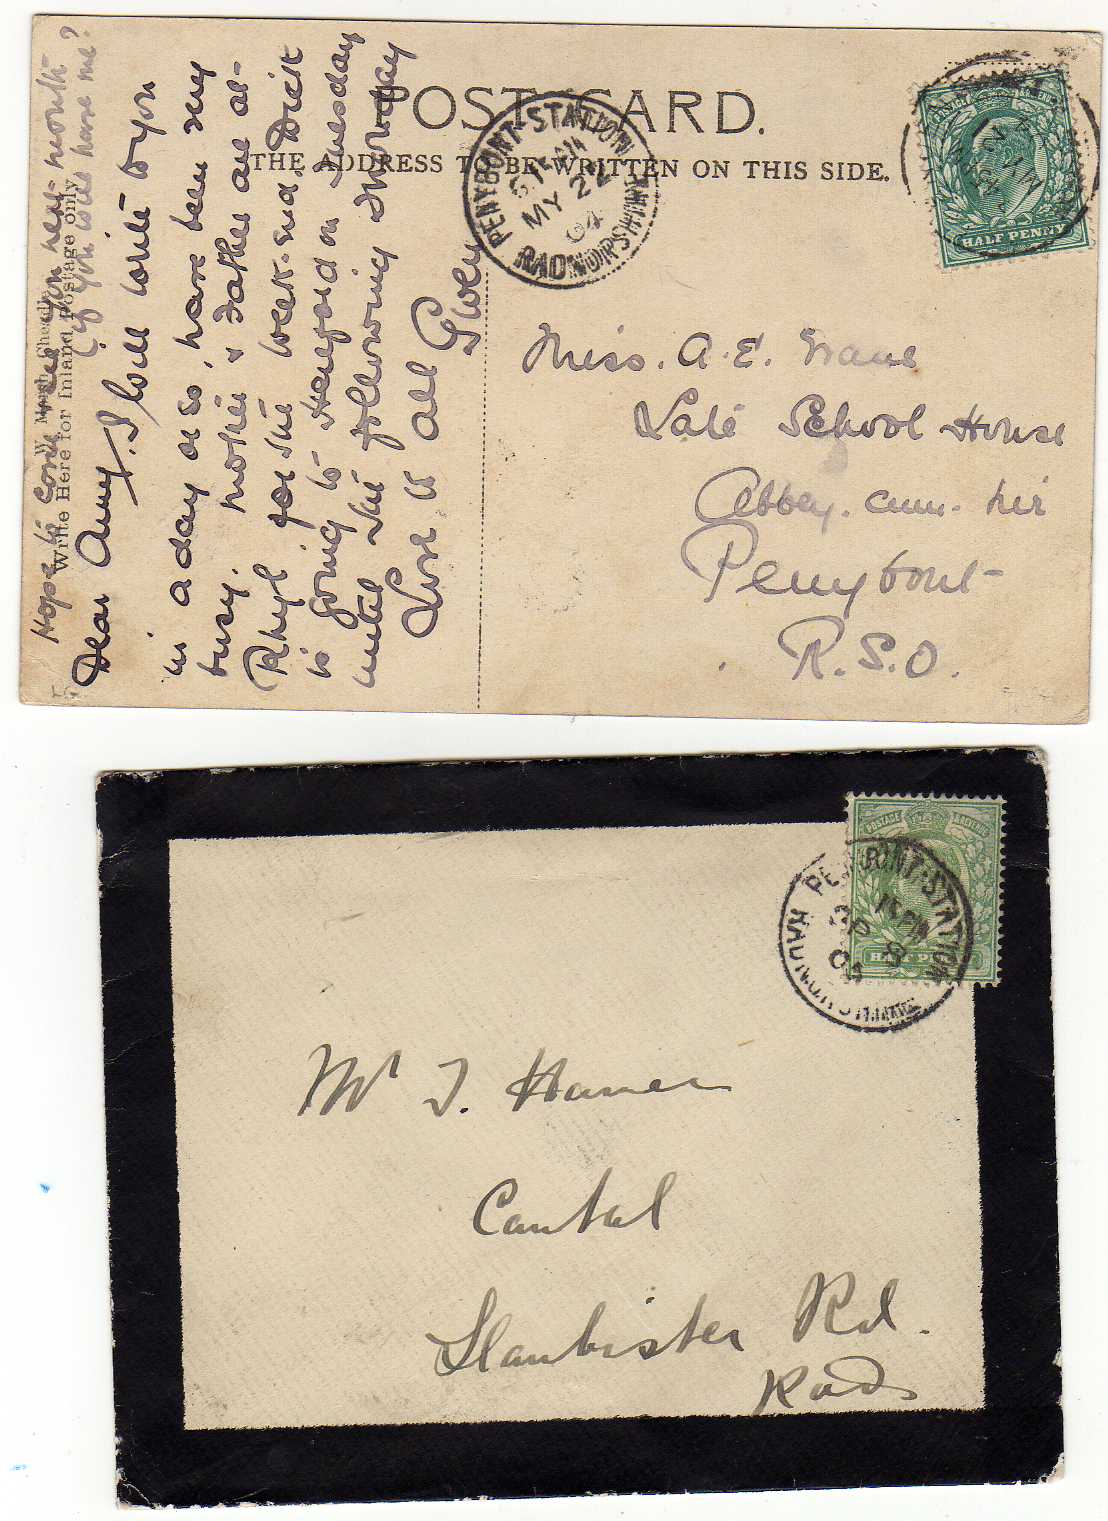 POST CARD.
THE ADDRESS TO BE WRITTEN ON THIS SIDE.
Write Here for Inland Postage only
Hope to come see you next month
(if you will have me?
Dear Amy. I will write to you
in a day or so, have been very
busy. Mother & Father are at
Rhyl for the week-end. Dick
is going to Hereford on Tuesday
until the following Thursday
Love to all Gwen
PENYBONT-STATION
MY 22
04
RADNORSHIRE
POSTAGE REVENUE
HALF PENNY
Miss. A. E. Evans
Late School House
Abbey. cwm. hir
Penybont
R.S.O.
POSTAGE REVENUE
HALF PENNY
PENYBONT-STATION
SP 8
05
RADNORSHIRE
Mr J. Hamer
Cantal
Llanbister Rd.
Rads